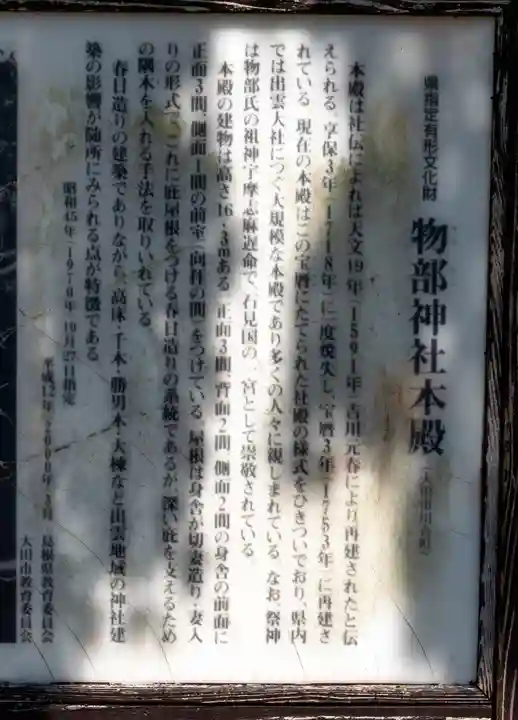 県指定有形文化財
物部神社本殿
(大田市川合町)
本殿は社伝によれば天文19年(1591年)吉川元春により再建されたと伝
えられる。享保3年(1718年)に一度焼失し、宝暦3年(1753年)に再建さ
れている。現在の本殿はこの宝暦にたてられた社殿の様式をひきついでおり、県内
では出雲大社につぐ大規模な本殿であり多くの人々に親しまれている。なお、祭神
は物部氏の祖神宇摩志麻遅命で、石見国の一宮として崇敬されている。
本殿の建物は高さ16.3mある。正面3間、背面2間、側面2間の身舎の前面に
正面3間、側面1間の前室(向拝の間)をつけている。屋根は身舎が切妻造り・妻入
りの形式で、これに庇屋根をつける春日造りの系統であるが、深い庇を支えるため
の隅木を入れる手法を取りいれている。
春日造りの建築でありながら、高床・千木・勝男木・大棟など出雲地域の神社建
築の影響が随所にみられる点が特徴である。
昭和45年(1970年)10月27日指定
平成12年(2000年)3月 島根県教育委員会
大田市教育委員会